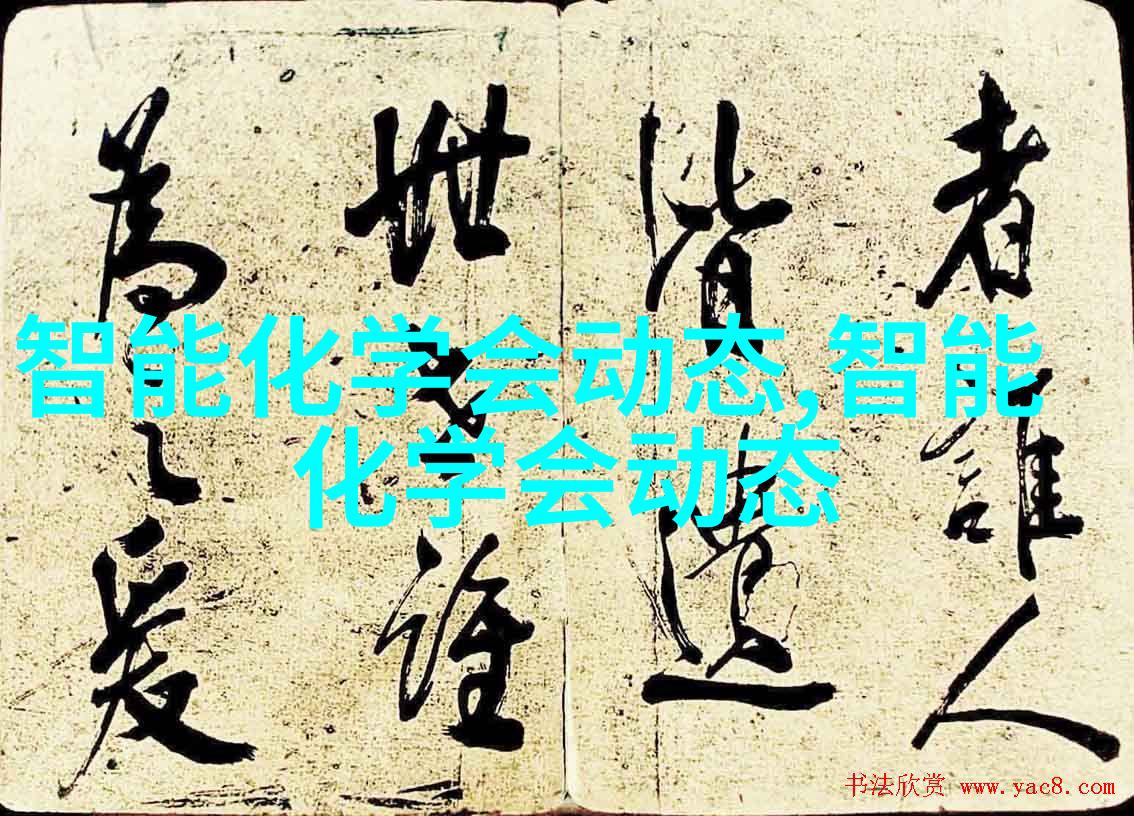 者誰人
皆遺
世誰
為之爰
智能化学会动态,智能
化学会动态
书法欣赏 www.yac8.com